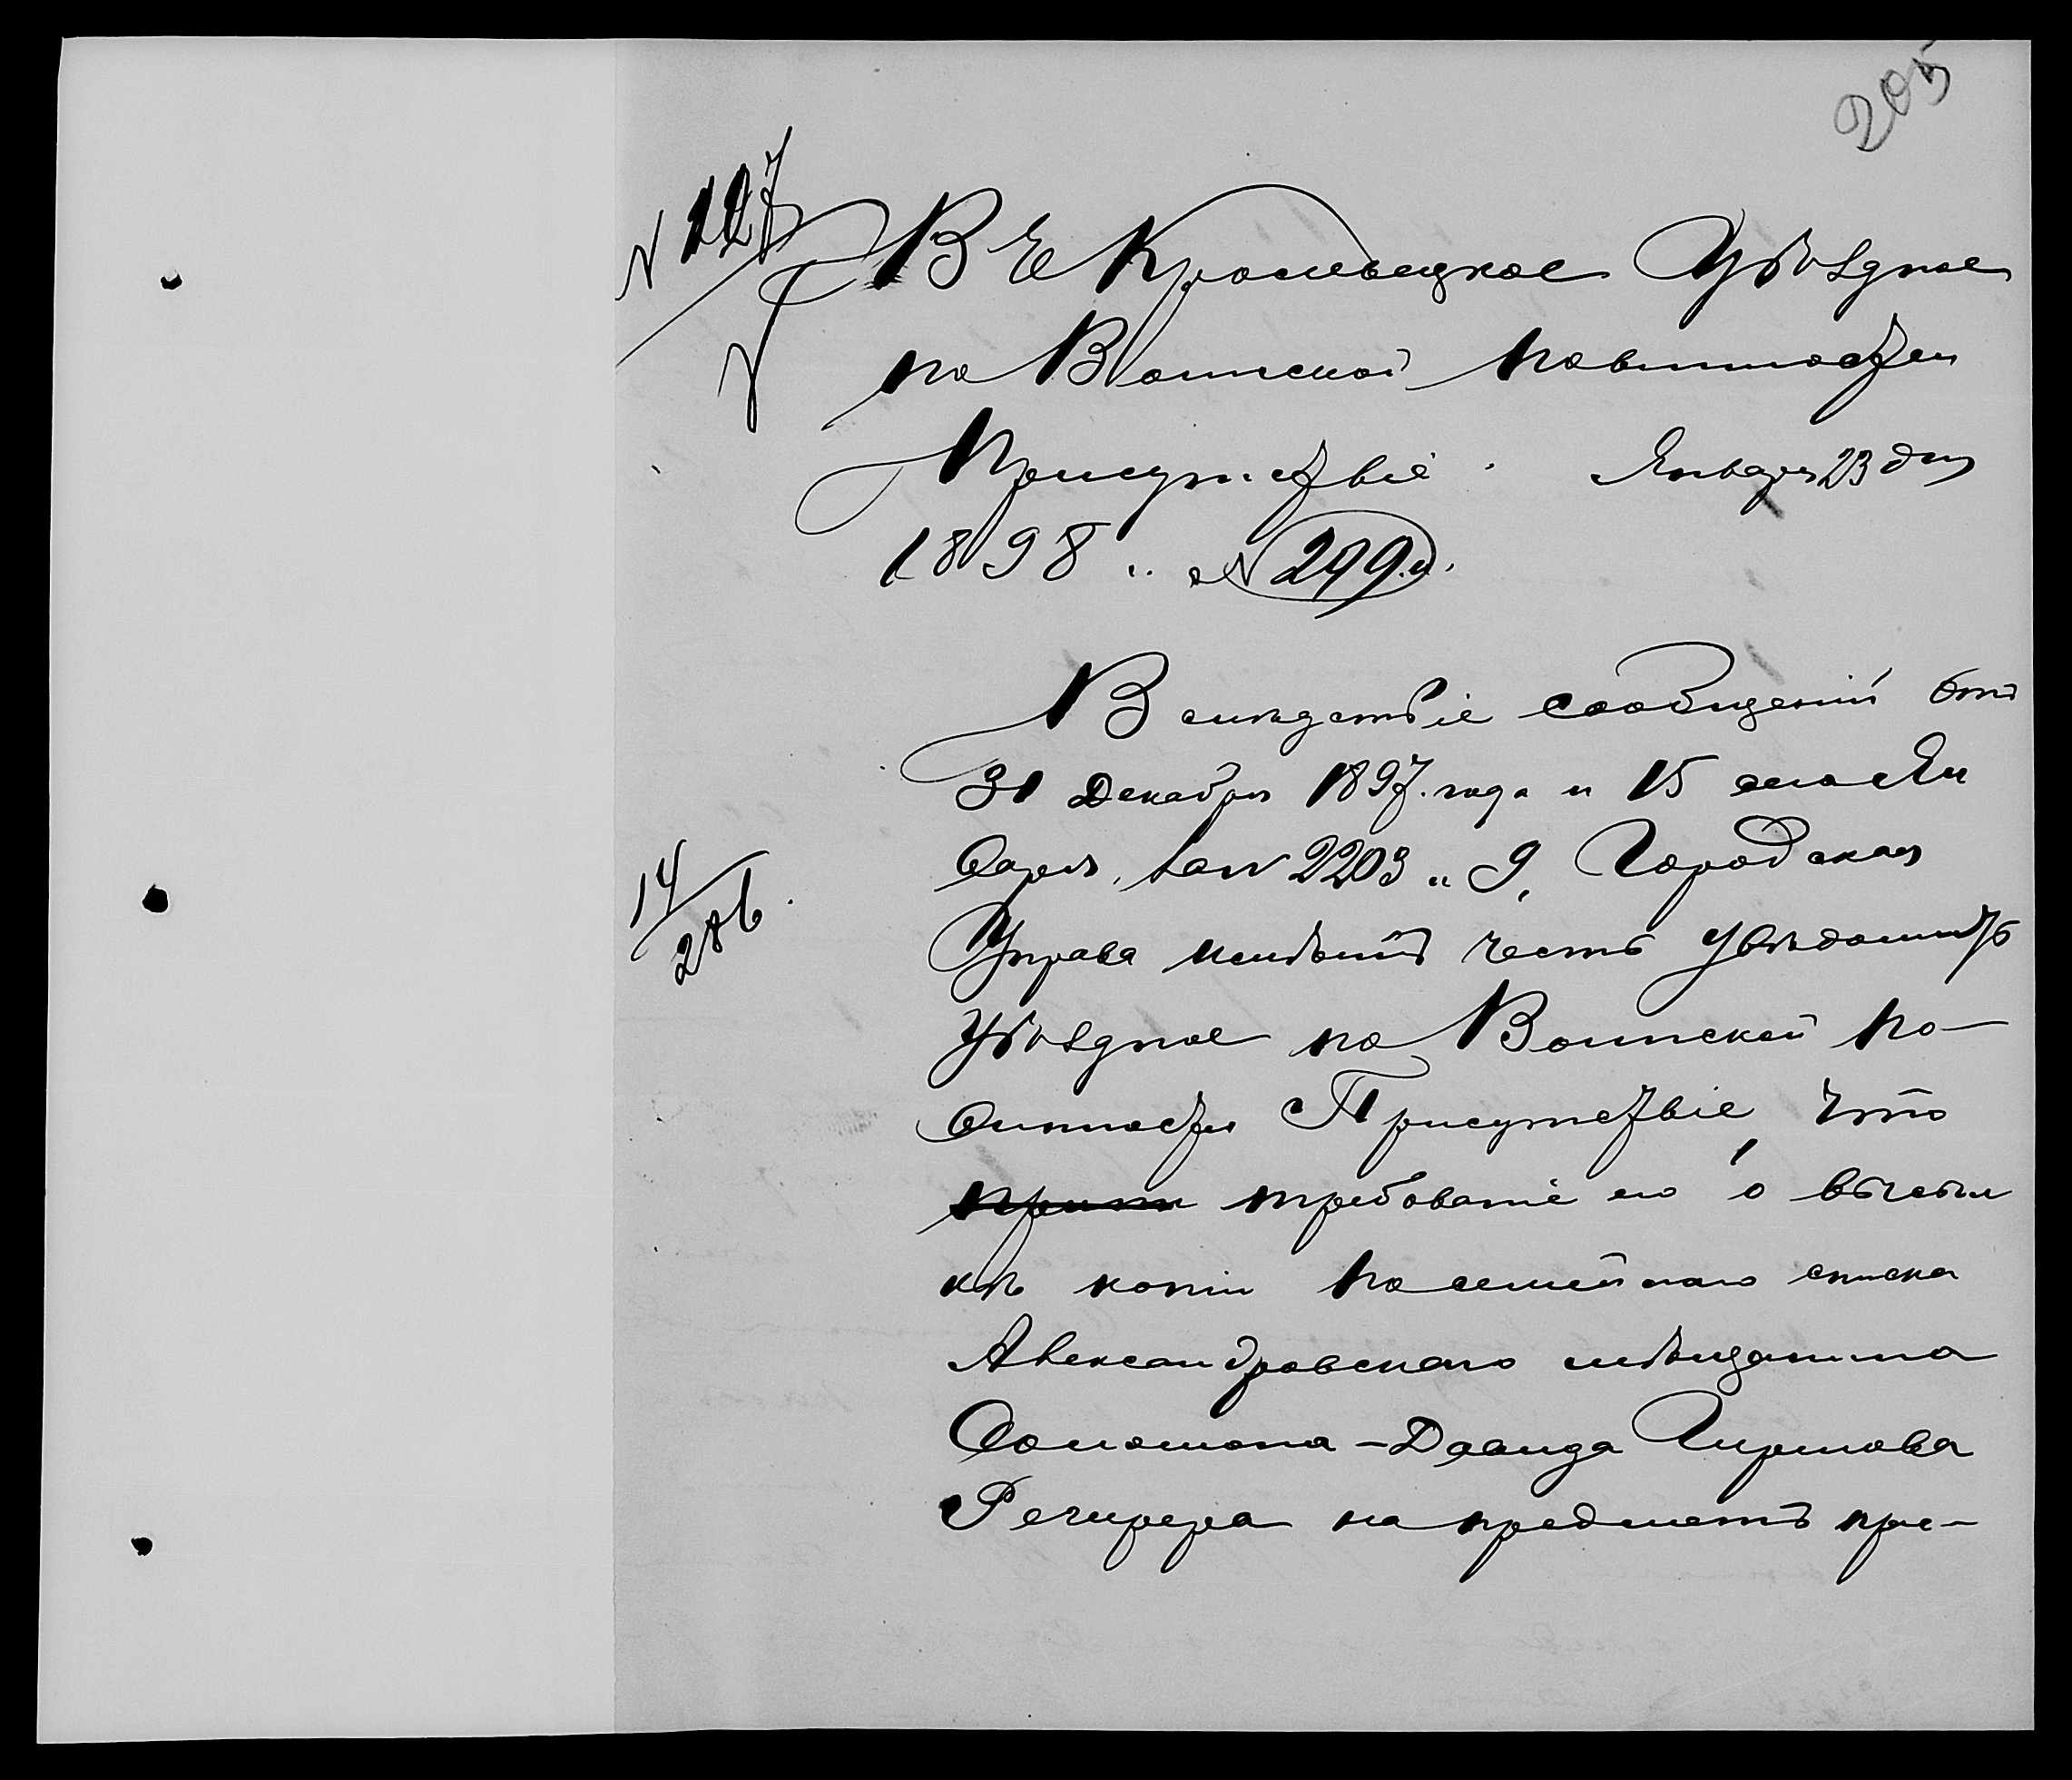 205
№ 127
Въ Кролевецкое Уѣздное
по Воинской повинности
Присутствіе. Января 23 дня
1898 г. № 299.
Вслѣдствіе сообщеній отъ
31 Декабря 1897 года и 15 сего Ян
варя, за № 2203 и 9, Городская
14/286.
Управа имѣетъ честь увѣдомить
Уѣздное по Воинской по-
винности Присутствіе, что
требованіе его о высыл
кѣ копіи посемейнаго списка
Александровскаго мѣщанина
Соломона-Давида Гиршова
на предметъ при-